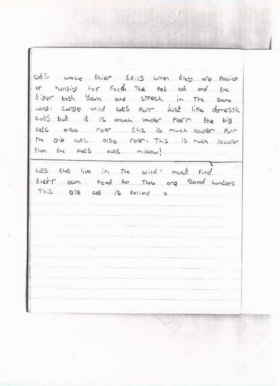 cats wave their tails when they are
or hunting for food. The pet cat and the
tiger both yawn and stretch in the same
way. Large wild cats purr just like domestic
cats but it is much louder the big
cats also roar this is much louder
the big cats also roar. This is much louder
than the pets cats miaow!
Cats that live in the wild must find
their own food so They are good hunters
This big cat is called a